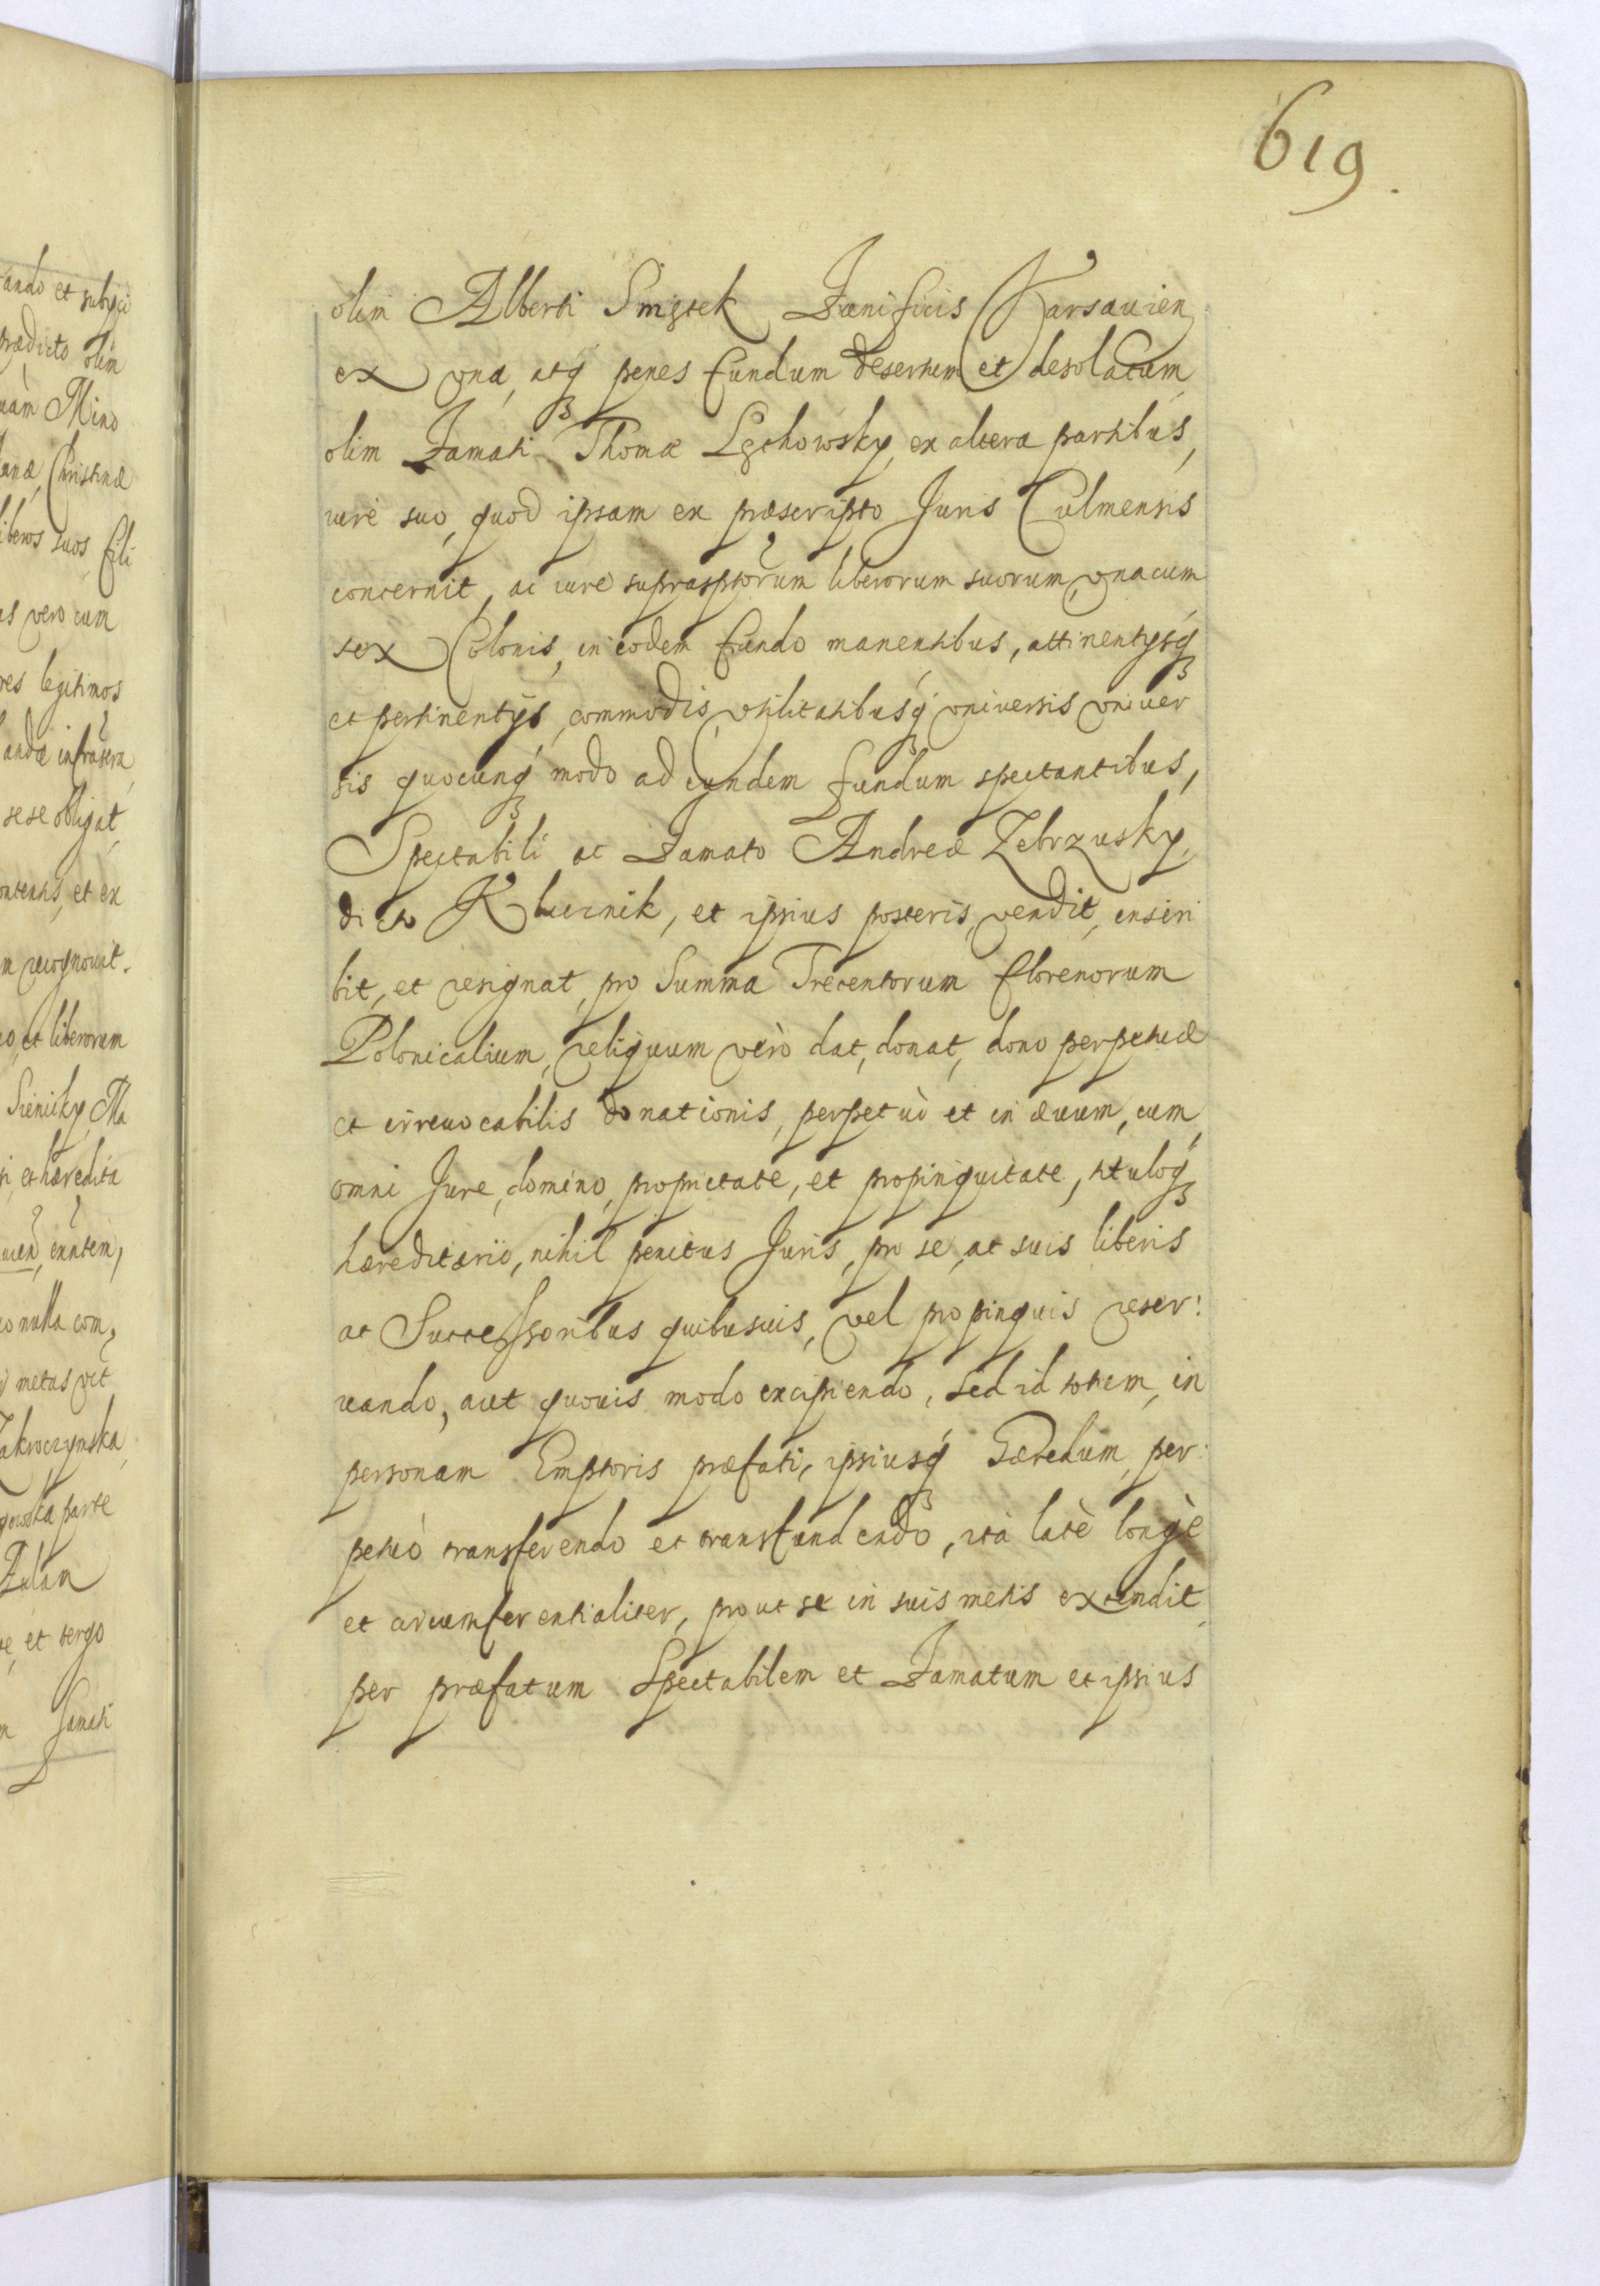 619.
olim Alberti Smętek Panificis Varsavien
ex una, atq₃ penes fundum desertum et desolatum
olim Famati Thomæ Lechowsky, ex altera partibus,
iure suo, quod ipsam ex præscripto Juris Culmensis
concernit, ac iure suprasptorum liberorum suorum, una cum
sex Colonis, in eodem fundo manentibus, attinentysq₃
et pertinentys, commodis, utilitatibusq₃ universis univer
sis quocunq₃ modo ad eundem fundum spectantibus,
Spectabili ac Famato Andreæ Zebrzusky,
dicto Klucznik, et ipsius posteris, vendit, inscri
bit, et resignat, pro Summa Trecentorum florenorum
Polonicalium, reliquum verò dat, donat, dono perpetuæ
et irreuocabilis donationis, perpetuò et in ævum, cum
omni Jure, dominio, proprietate, et propinquitate, tituloq₃
hæreditario, nihil penitus Juris, pro se, ac suis liberis
ac Successoribus quibusuis, vel propinquis reser:
uando, aut quouis modo excipiendo, sed id totum, in
personam Emptoris præfati, ipsiusq₃ Hæredum, per:
petuò transferendo et transfundendo, ità latè longè
et circumferentialiter, prout se in suis metis extendit,
per præfatum Spectabilem et Famatum et ipsius
ando et subyci
prædicto olim
uàm Mino
anæ, Christinæ
liberos suos, fili
as vero cum
res legitimos
andæ infrascra
sese obligat,
ontentis, et ex
m recognouit.
o, et liberorum
Sienicky, Ma
ri, et hæredita
uien, enntem,
o nulla com,
metas vet
Zakroczymska,
gowska parte
Zulam
te, et tergo
m Famati